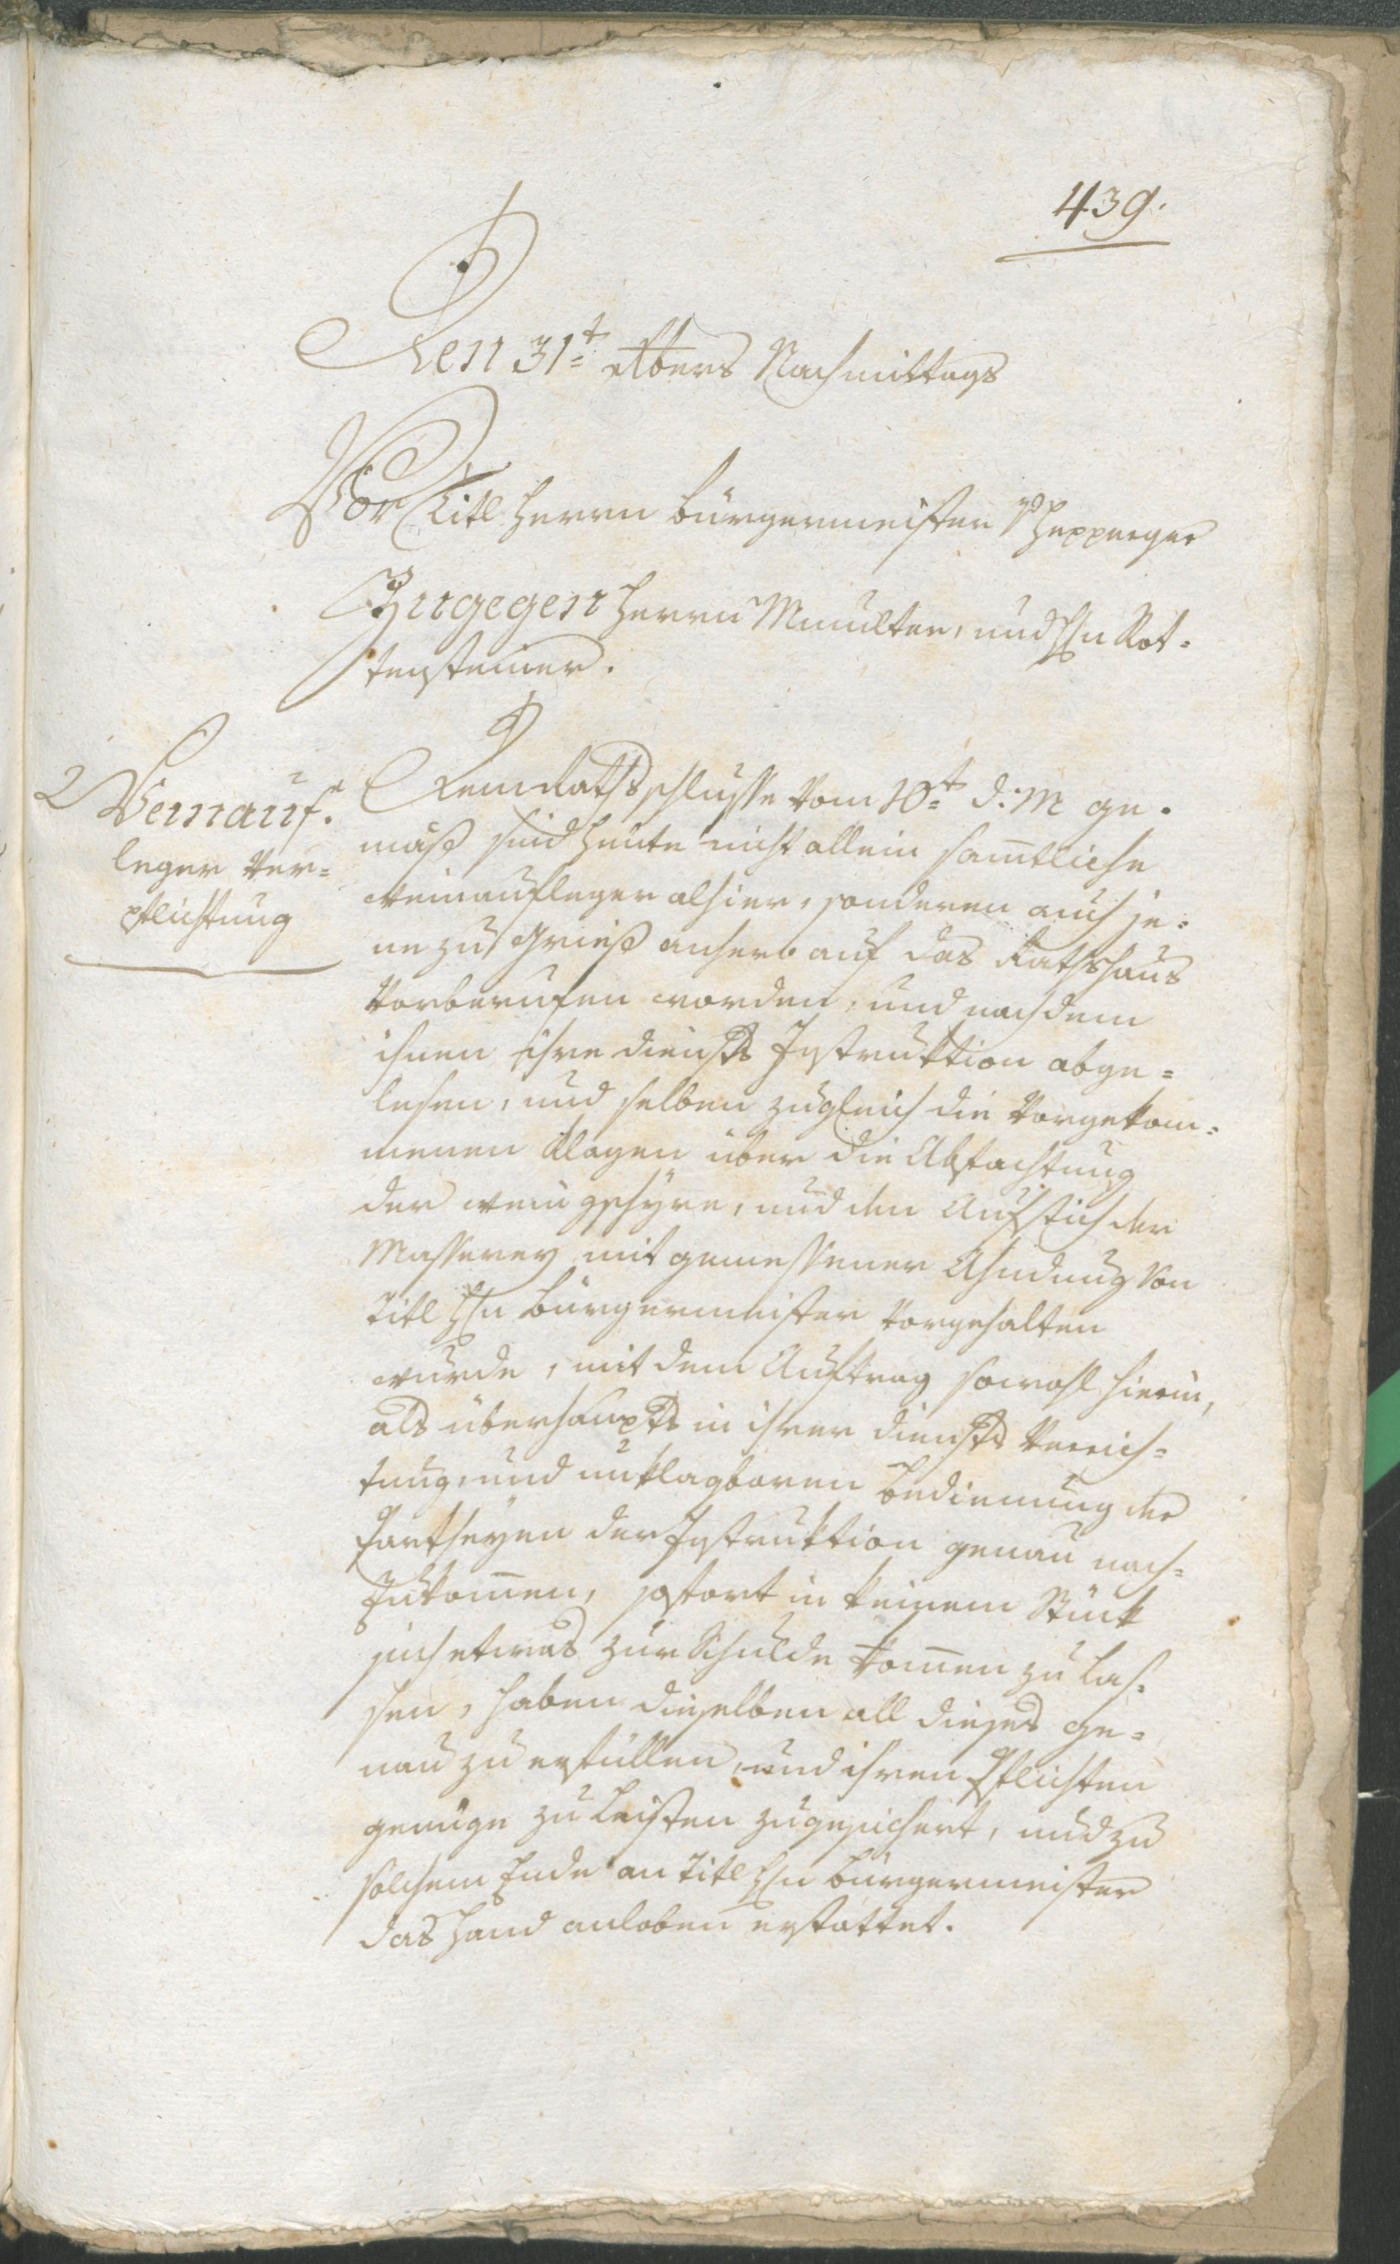 439.
Den 31t. 8bers Nachmittags
Vor Titl Herrn Bürgermeister v Hepperger
Entgegen Herrn Mumelter, und Hn Rot-
tensteiner.
Weinauf-
leger Ver-
pflichtung
Dem Rathsschlusse vom 10t d: M ge-
mäß sind heute nicht allein sam̅tliche
Weinaufleger alhier, sonderen auch je-
ne zu Grieß anhero auf das Rathshaus
Vorberufen worden, und nachdem
ihnen ihre diensts Instruktion abge-
lesen, und selben zugleich die Vorgekom-
menen Klagen über die Abfachtung
der weingschyre, und den Aufstich der
Masserey mit gemessener Ahndung von
Titl Hn Bürgermeister Vorgehalten
wurde, mit dem Auftrag sowohl hierin,
als überhaupts in ihrer diensts Verrich-
tung, und unklagbaren bedienung der
Partheyen der Instruktion genau nach-
zukom̅en, sofort in keinem Stück
sich etwas zur Schulde kom̅en zu las-
sen, haben dieselben all dieses ge-
nau zu erfüllen, und ihren Pflichten
genüge zu leisten zugesichert, und zu
solchem Ende an Titl Hn Bürgermeister
das Hand anloben erstattet.